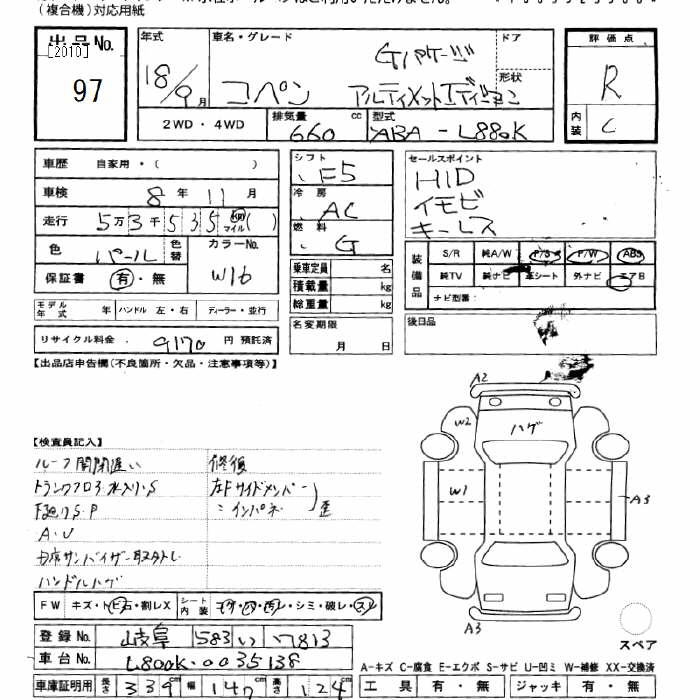 (複合機)対応用紙
出品No.
[2010]
97
年式
18/9月
車名・グレード
Gパケージ
コペン アルティメットエディション
ドア
形状
評価点
R
内装
C
2WD・4WD
排気量
660 cc
型式
ABA-L880K
車歴 自家用・( )
車検 8年 11月
走行 5万3千535 マイル ( )
色 パール 色替
カラーNo.
W16
保証書 有・無
モデル年式 年 ハンドル 左・右 ディーラー・並行
リサイクル料金 9170 円 預託済
シフト
F5
冷房
AC
燃料
G
乗車定員 名
積載量 kg
総重量 kg
名変期限
月 日
セールスポイント
HID
イモビ
キーレス
装備品
S/R 純A/W P/S P/W ABS
純TV 純ナビ 革シート 外ナビ エアB
ナビ型番:
後日品
【出品店申告欄(不良箇所・欠品・注意事項等)】
【検査員記入】
ルーフ開閉遅い
トランクフロア水入りS
下廻りS・P
A・U
右席サンバイザー取タトレ
ハンドルハゲ
修復
左Fサイドメンバー
〃インパネ
歪
A2
W2
ハゲ
W1
A3
A3
FW キズ・トビ石・割レX
シート内装 コゲ・穴・汚レ・シミ・破レ・スレ
登録No. 岐阜 583 い 7813
車台No. L880K-0035138
車庫証明用 長さ 339cm 幅 147cm 高さ 124cm
スペア
A-キズ C-腐食 E-エクボ S-サビ U-凹ミ W-補修 XX-交換済
工具 有・無 ジャッキ 有・無